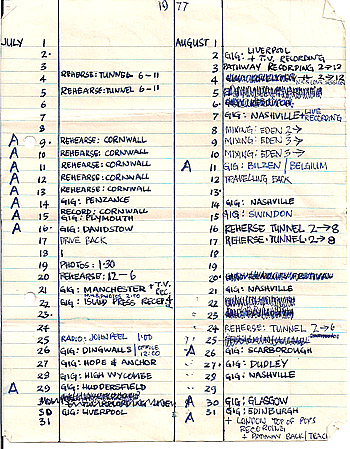 1977
JULY 1
2.
3
4 REHERSE: TUNNEL 6-11
5 REHERSE: TUNNEL 6-11
6
7
8
A 9. REHEARSE: CORNWALL
A 10 REHEARSE: CORNWALL
A 11 REHEARSE: CORNWALL
A 12 REHEARSE: CORNWALL
A 13 REHEARSE: CORNWALL
A 14 GIG: PENZANCE
A 15 RECORD: CORNWALL
GIG: PLYMOUTH
A 16. GIG: DAVIDSTOW
17 DRIVE BACK
18
19 PHOTOS: 1.30
20 REHEARSE: 12-6
21 GIG: MANCHESTER + T.V. REC.
22 GIG: PRESS RECEP.
23.
24
25 RADIO: JOHN PEEL 1.00
26 GIG: DINGWALLS / OFFICE 12.00
27 GIG: HOPE & ANCHOR
28 GIG: HIGH WYCOMBE
A 29 GIG: HUDDERSFIELD
30 GIG: LIVERPOOL
31
AUGUST 1
2 GIG: LIVERPOOL + T.V. RECORDING
3 PATHWAY RECORDING 2→12
4 → 12
5
6
7 GIG: NASHVILLE + LIVE RECORDING
8 MIXING: EDEN 2→
9 MIXING: EDEN 3→
10 MIXING: EDEN 3→
A 11 GIG: BILZEN / BELGIUM
12 TRAVELLING BACK
13
14 GIG: NASHVILLE
15 GIG: SWINDON
16 REHERSE TUNNEL 2→8
17 REHERSE: TUNNEL 2→8
18
19
20 FESTIVAL
21 GIG: NASHVILLE
22
23
24 REHERSE: TUNNEL 2→6
25
A 26 GIG: SCARBOROUGH
27. GIG: DUDLEY
28 GIG: NASHVILLE
29
A 30 GIG: GLASGOW
A 31 GIG: EDINBURGH
+ LONDON TOP OF POPS RECORDING
+ PATHWAY BACK